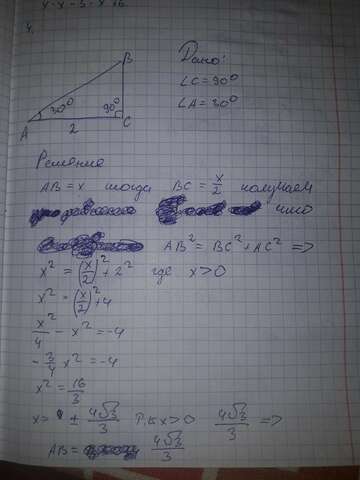 4.
B
Дано:
∠C = 90°
∠A = 30°
30°
90°
A
2
C
Решение
AB = x тогда BC = x/2 получаем
что
AB² = BC² + AC² =>
x² = (x/2)² + 2² где x > 0
x² = (x/2)² + 4
x²/4 - x² = -4
-3/4 x² = -4
x² = 16/3
x = ± 4√3/3 т.к x > 0 4√3/3 =>
AB = 4√3/3